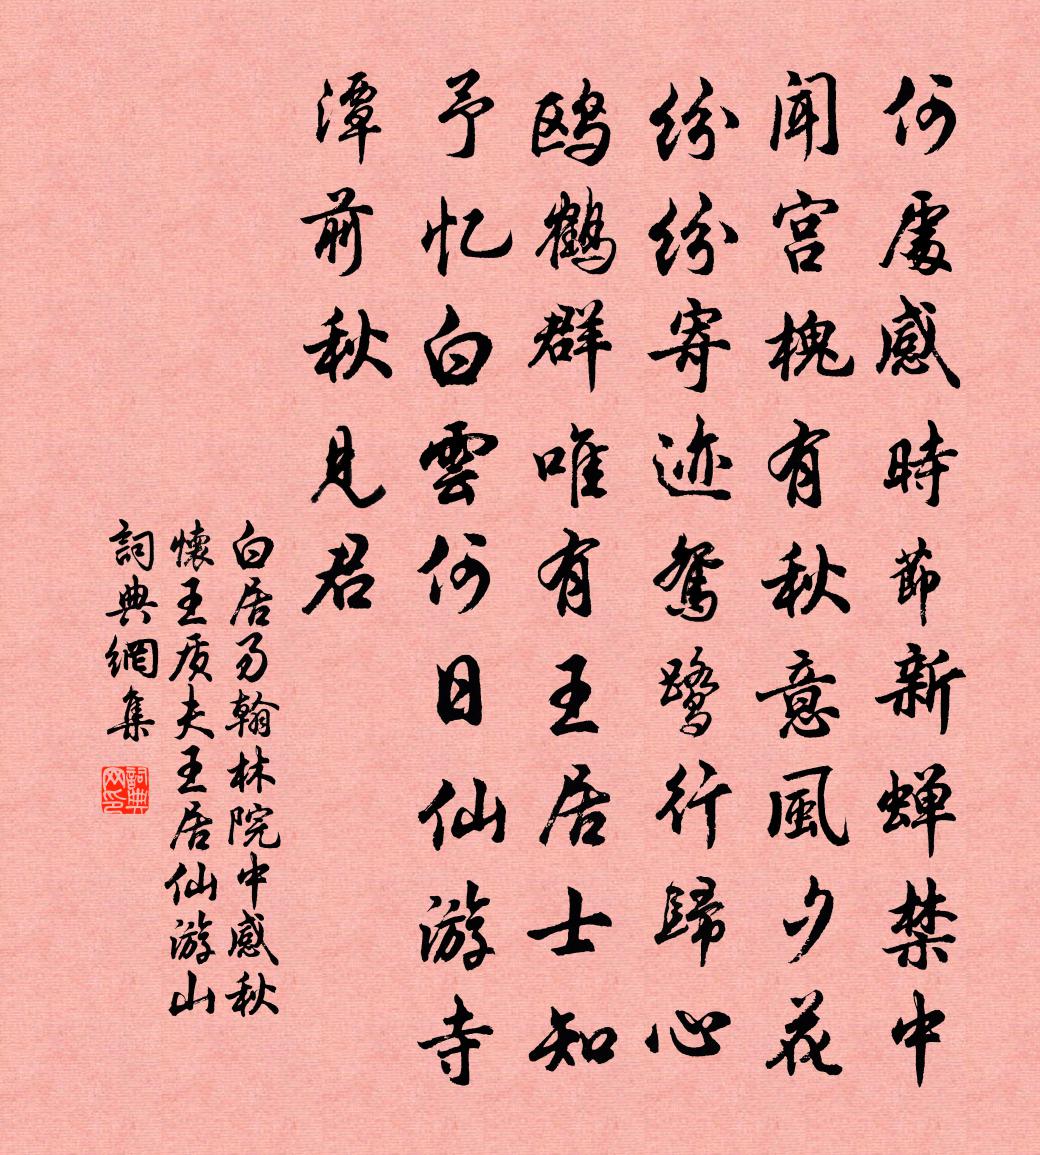 何處感時節新蝉禁中
闻宫槐有秋意風夕花
纷纷寄迹鸳鹭行歸心
鸥鹤群唯有王居士知
予忆白雲何日仙游寺
潭前秋見君
白居易翰林院中感秋
懷王质夫王居仙游山
詞典網集
詞典网印